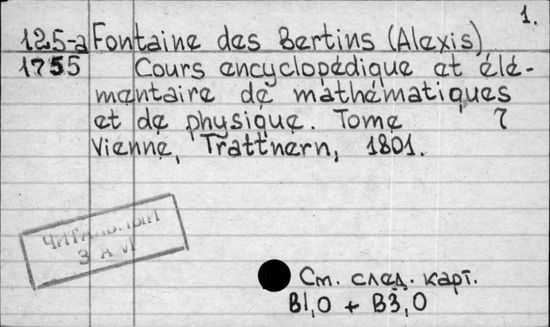 1.
125-а Fontaine des Bertins (Alexis)
1755 Cours encyclopédique et élé-
mentaire de mathématiques
et de physique. Tome 7
Vienne, Trattnern, 1801.
ЧИТАЛЬНЫЙ
ЗАЛ
См. след. карт.
В1,0 + В3,0